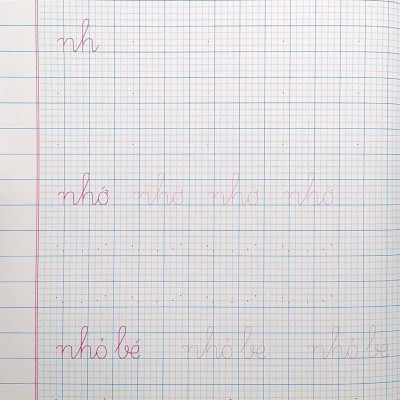 nh
nhớ nhớ nhớ nhớ
nhỏ bé nhỏ bé nhỏ bé